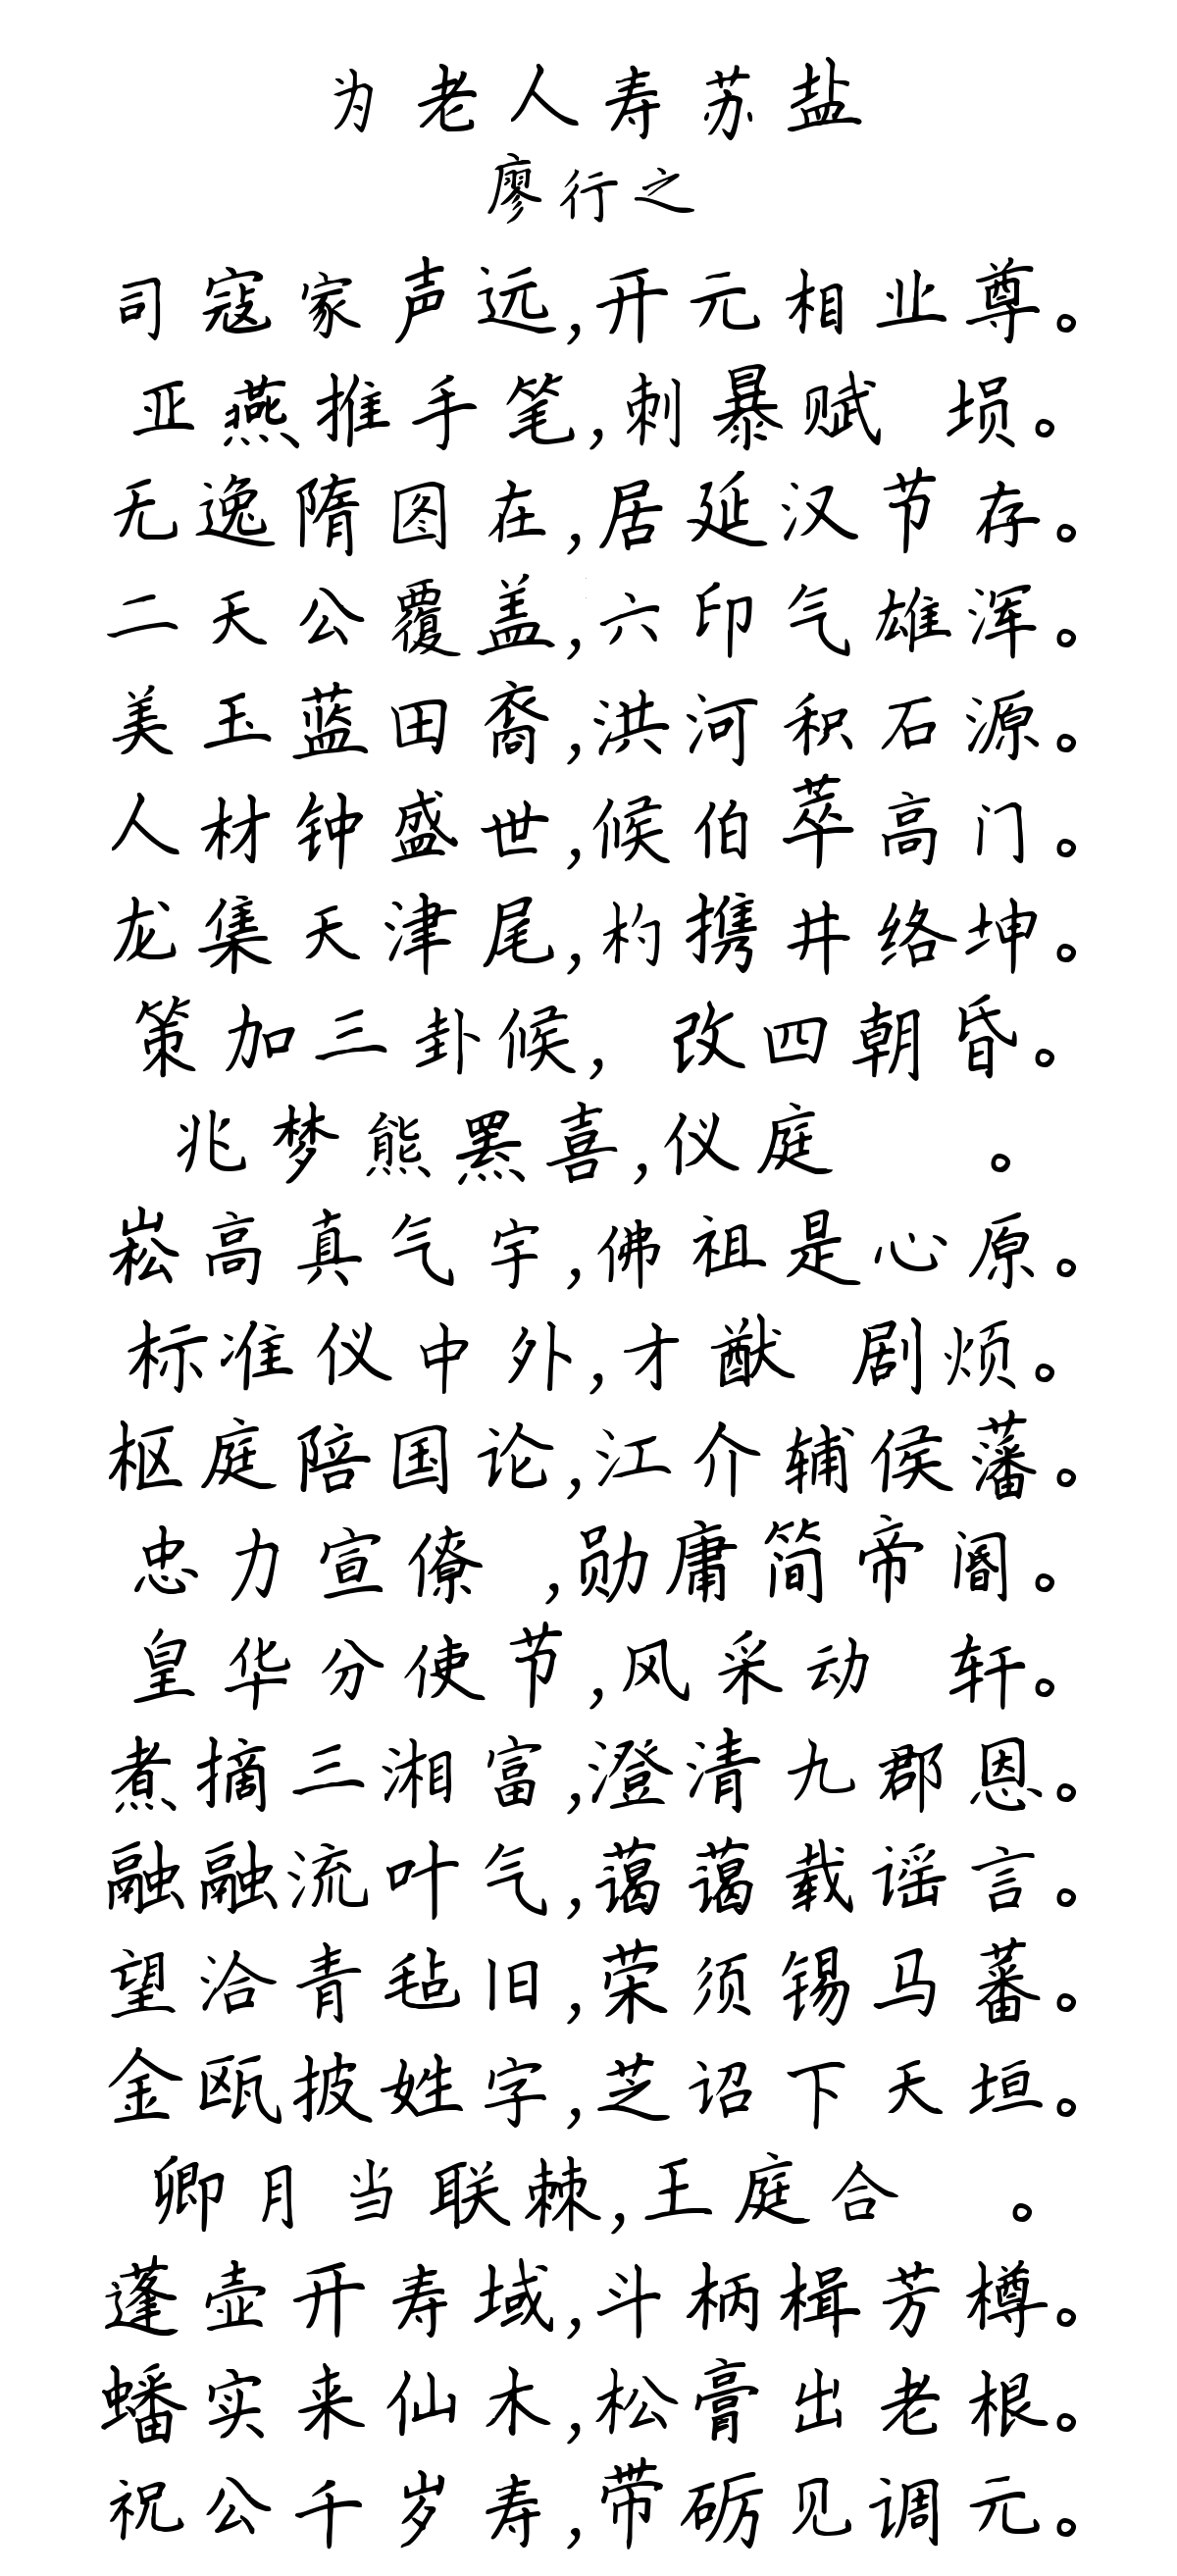 为老人寿苏盐
廖行之
司寇家声远,开元相业尊。
亚燕推手笔,刺暴赋 埙。
无逸隋图在,居延汉节存。
二天公覆盖,六印气雄浑。
美玉蓝田裔,洪河积石源。
人材钟盛世,候伯萃高门。
龙集天津尾,杓携井络坤。
策加三卦候, 改四朝昏。
兆梦熊罴喜,仪庭 。
崧高真气宇,佛祖是心原。
标准仪中外,才猷 剧烦。
枢庭陪国论,江介辅侯藩。
忠力宣僚 ,勋庸简帝阍。
皇华分使节,风采动 轩。
煮摘三湘富,澄清九郡恩。
融融流叶气,蔼蔼载谣言。
望洽青毡旧,荣须锡马蕃。
金瓯披姓字,芝诏下天垣。
卿月当联棘,王庭合 。
蓬壶开寿域,斗柄楫芳樽。
蟠实来仙木,松膏出老根。
祝公千岁寿,带砺见调元。